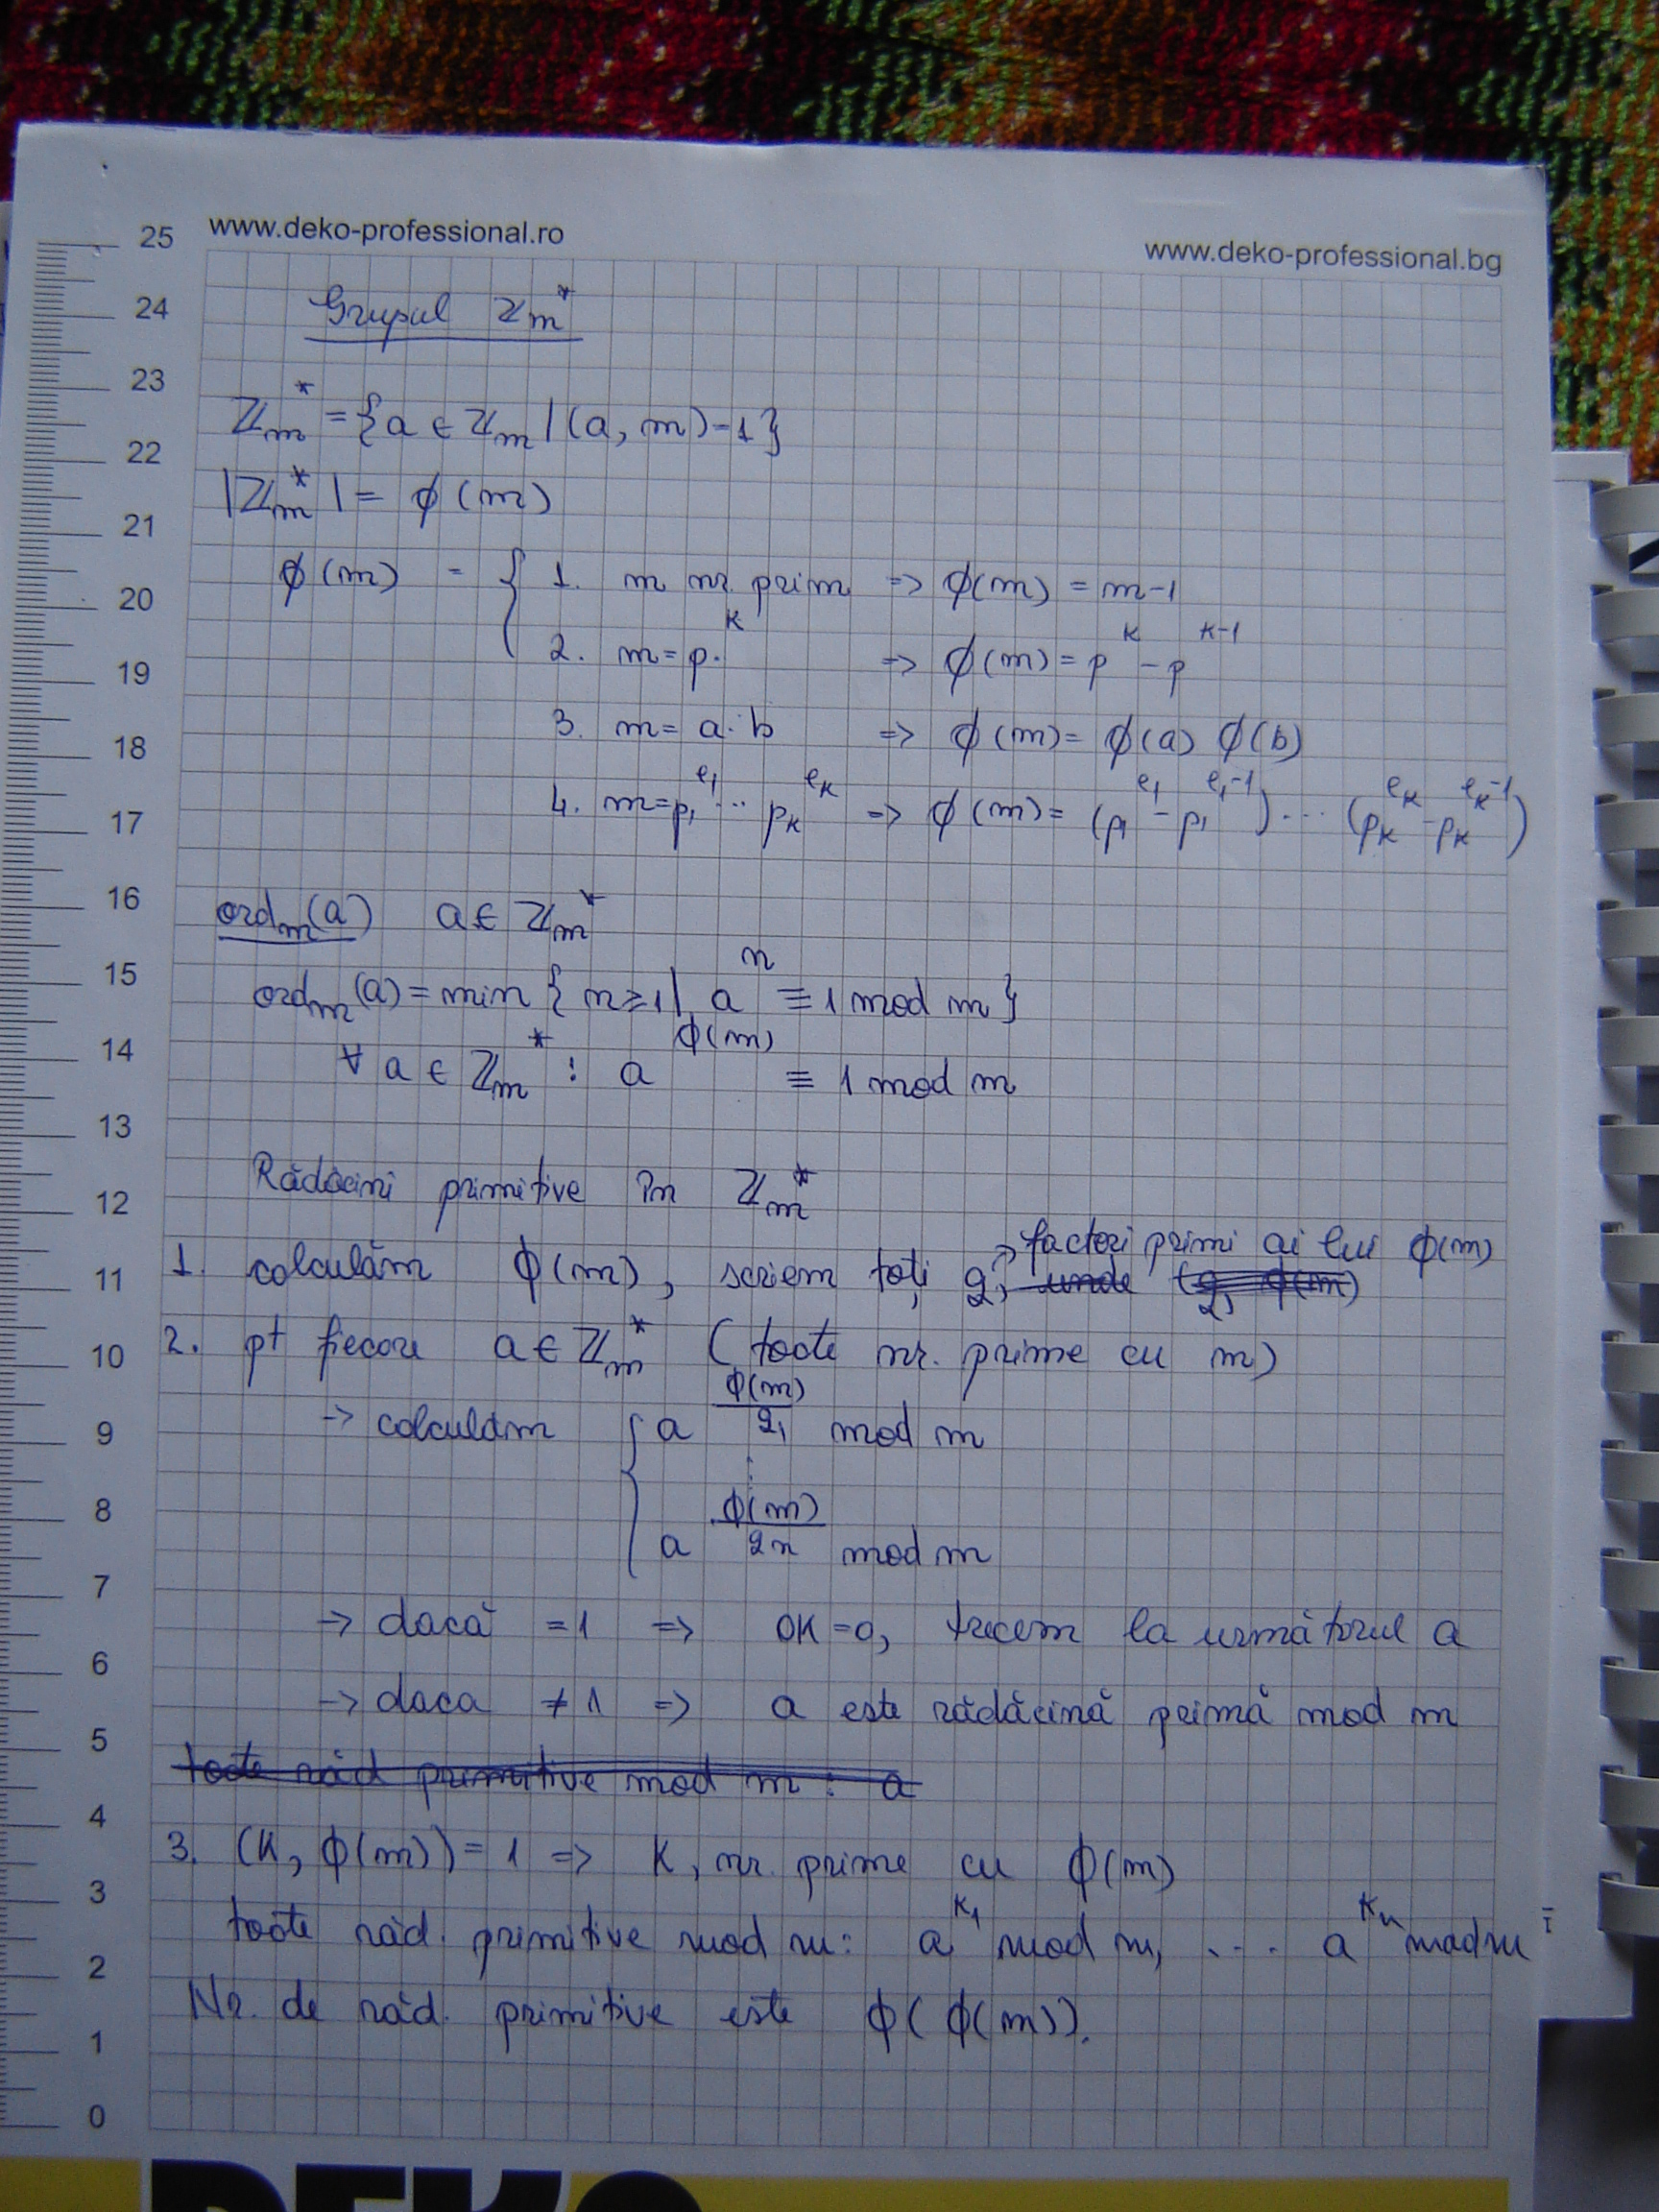 www.deko-professional.ro www.deko-professional.bg
Grupul ℤm*
ℤm* = {a ∈ ℤm | (a, m) = 1}
|ℤm*| = ϕ(m)
ϕ(m) = { 1. m nr. prim => ϕ(m) = m-1
2. m = p^k => ϕ(m) = p^k - p^(k-1)
3. m = a·b => ϕ(m) = ϕ(a) ϕ(b)
4. m = p1^e1 ... pk^ek => ϕ(m) = (p1^e1 - p1^(e1-1)) ... (pk^ek - pk^(ek-1))
ordm(a) a ∈ ℤm*
ordm(a) = min { n ≥ 1 | a^n ≡ 1 mod m }
∀ a ∈ ℤm* : a^ϕ(m) ≡ 1 mod m
Rădăcini primitive în ℤm*
1. calculăm ϕ(m), scriem toți q, → factori primi ai lui ϕ(m)
unde (q, ϕ(m))
2. pt fiecare a ∈ ℤm* (toate nr. prime cu m)
→ calculăm { a^(ϕ(m)/q1) mod m
⋮
a^(ϕ(m)/qn) mod m
→ dacă = 1 => OK=0, trecem la următorul a
→ daca ≠ 1 => a este rădăcină primă mod m
toate răd primitive mod m : a
3. (k, ϕ(m)) = 1 => k, nr. prime cu ϕ(m)
toate răd. primitive mod m: a^k1 mod m, ... a^kn mod m
Nr. de răd. primitive este ϕ(ϕ(m)).
25
24
23
22
21
20
19
18
17
16
15
14
13
12
11
10
9
8
7
6
5
4
3
2
1
0
DEKO